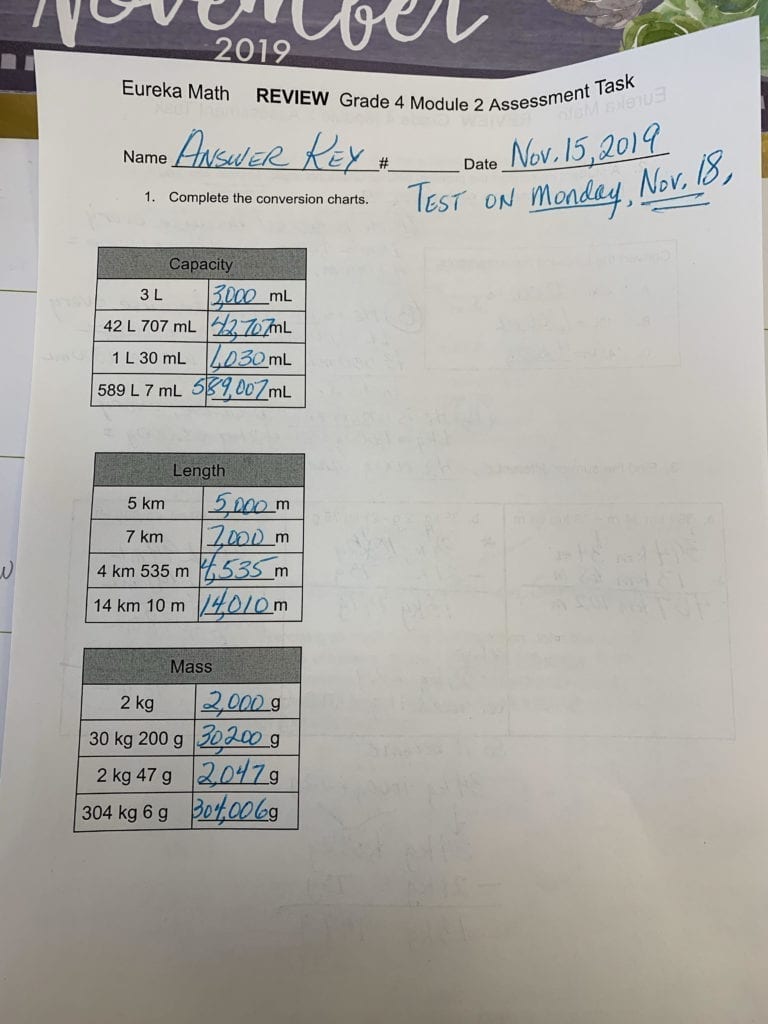 November
2019
Eureka Math REVIEW Grade 4 Module 2 Assessment Task
Name ANSWER KEY # Date Nov. 15, 2019
TEST ON Monday, Nov. 18,
1. Complete the conversion charts.
Capacity
3 L 3,000 mL
42 L 707 mL 42,707 mL
1 L 30 mL 1,030 mL
589 L 7 mL 589,007 mL
Length
5 km 5,000 m
7 km 7,000 m
4 km 535 m 4,535 m
14 km 10 m 14,010 m
Mass
2 kg 2,000 g
30 kg 200 g 30,200 g
2 kg 47 g 2,047 g
304 kg 6 g 304,006 g